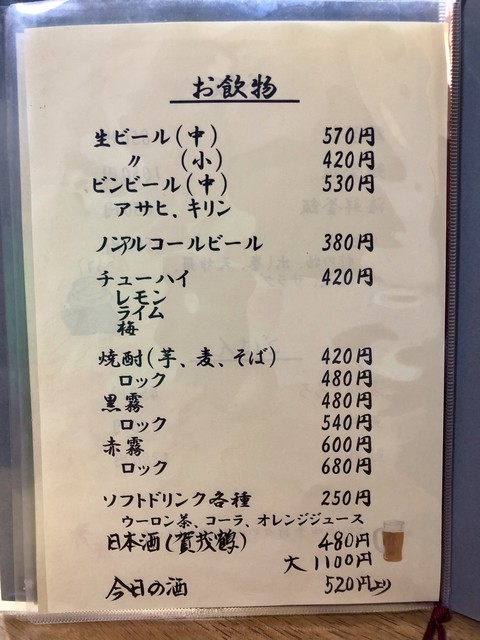 お飲物
生ビール(中) 570円
〃 (小) 420円
ビンビール(中) 530円
アサヒ、キリン
ノンアルコールビール 380円
チューハイ 420円
レモン
ライム
梅
焼酎(芋、麦、そば) 420円
ロック 480円
黒霧 480円
ロック 540円
赤霧 600円
ロック 680円
ソフトドリンク各種 250円
ウーロン茶、コーラ、オレンジジュース
日本酒(賀茂鶴) 480円
大 1100円
今日の酒 520円より